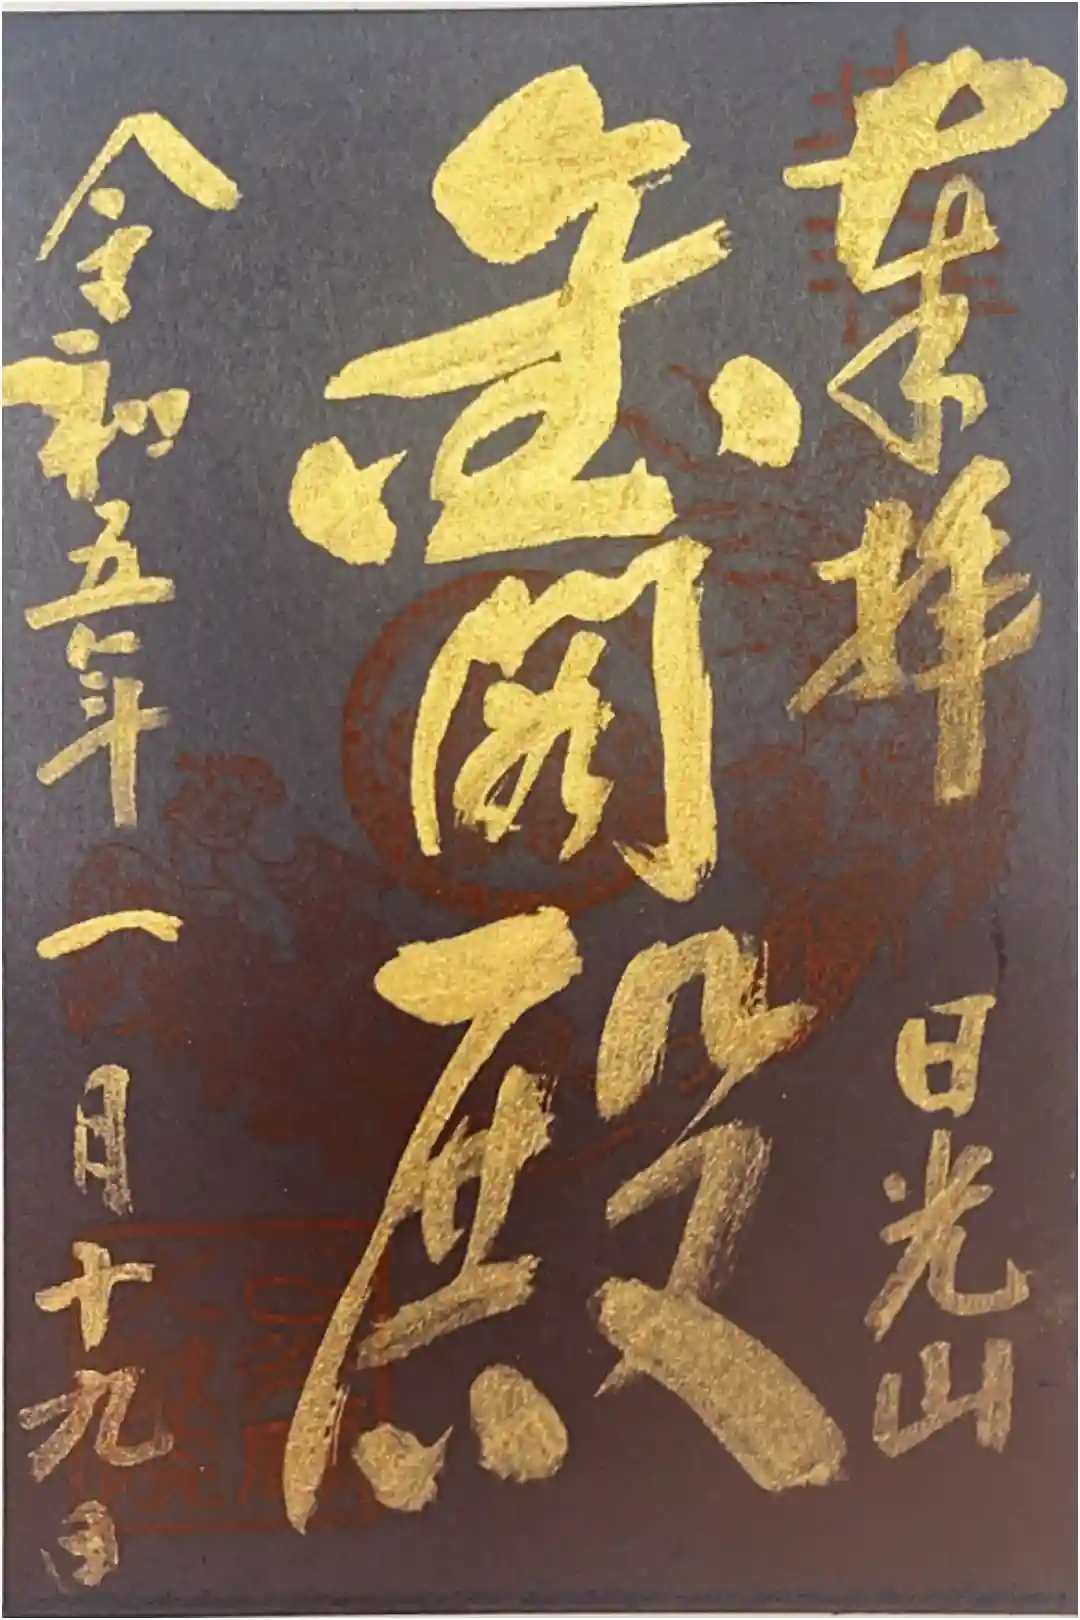 奉拝 日光山
金閣殿
令和五年 一月十九日